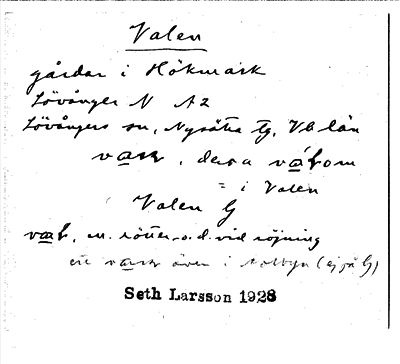 Valen
gårdar i Hökmark
Lövånger N A2
Lövångers sn, Nysätra tg, Vb län
van, dessa våtom
= i Valen
Valen G
vat, m. rötter o.d. vid röjning
en van även i (ej på G)
Seth Larsson 1928